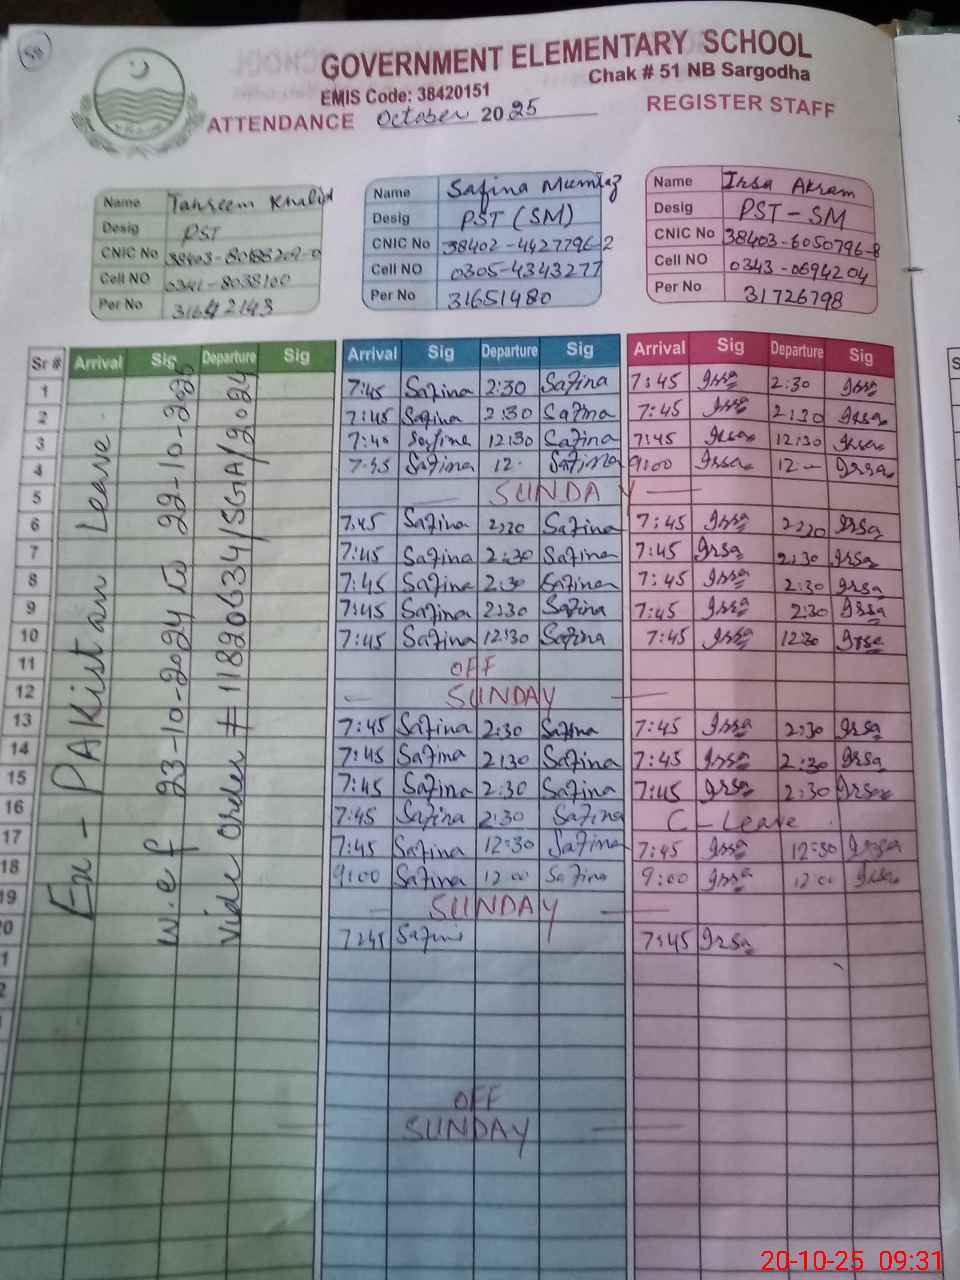 59
GOVERNMENT ELEMENTARY SCHOOL
Chak # 51 NB Sargodha
EMIS Code: 38420151
ATTENDANCE October 2025 REGISTER STAFF
Name Tahreem Khalid
Desig PST
CNIC No
Cell NO 0341-8038100
Per No 31642143
Name Safina Mumtaz
Desig PST (SM)
CNIC No 38402-4427796-2
Cell NO 0305-4343277
Per No 31651480
Name Irsa Akram
Desig PST-SM
CNIC No 38403-6050796-8
Cell NO 0343-0694204
Per No 31726798
Sr # Arrival Sig Departure Sig Arrival Sig Departure Sig Arrival Sig Departure Sig
Ex - PAKistan Leave
w.e.f 23-10-2024 to 22-10-2026
vide order # 11820634/SGTA/2024
1 7:45 Safina 2:30 Safina 7:45 Irsa 2:30 Irsa
2 7:45 Safina 2:30 Safina 7:45 Irsa 2:30 Irsa
3 7:40 Safina 12:30 Safina 7:45 Irsa 12:30 Irsa
4 7:45 Safina 12. Safina 9:00 Irsa 12 - Irsa
5 SUNDAY
6 7:45 Safina 2:30 Safina 7:45 Irsa 2:30 Irsa
7 7:45 Safina 2:30 Safina 7:45 Irsa 2:30 Irsa
8 7:45 Safina 2:30 Safina 7:45 Irsa 2:30 Irsa
9 7:45 Safina 2:30 Safina 7:45 Irsa 2:30 Irsa
10 7:45 Safina 12:30 Safina 7:45 Irsa 12:30 Irsa
11 OFF
12 SUNDAY
13 7:45 Safina 2:30 Safina 7:45 Irsa 2:30 Irsa
14 7:45 Safina 2:30 Safina 7:45 Irsa 2:30 Irsa
15 7:45 Safina 2:30 Safina 7:45 Irsa 2:30 Irsa
16 7:45 Safina 2:30 Safina C-Leave
17 7:45 Safina 12:30 Safina 7:45 Irsa 12:30 Irsa
18 9:00 Safina 12:00 Safina 9:00 Irsa 12:00 Irsa
19 SUNDAY
20 7:45 Safina 7:45 Irsa
OFF
SUNDAY
20-10-25 09:31